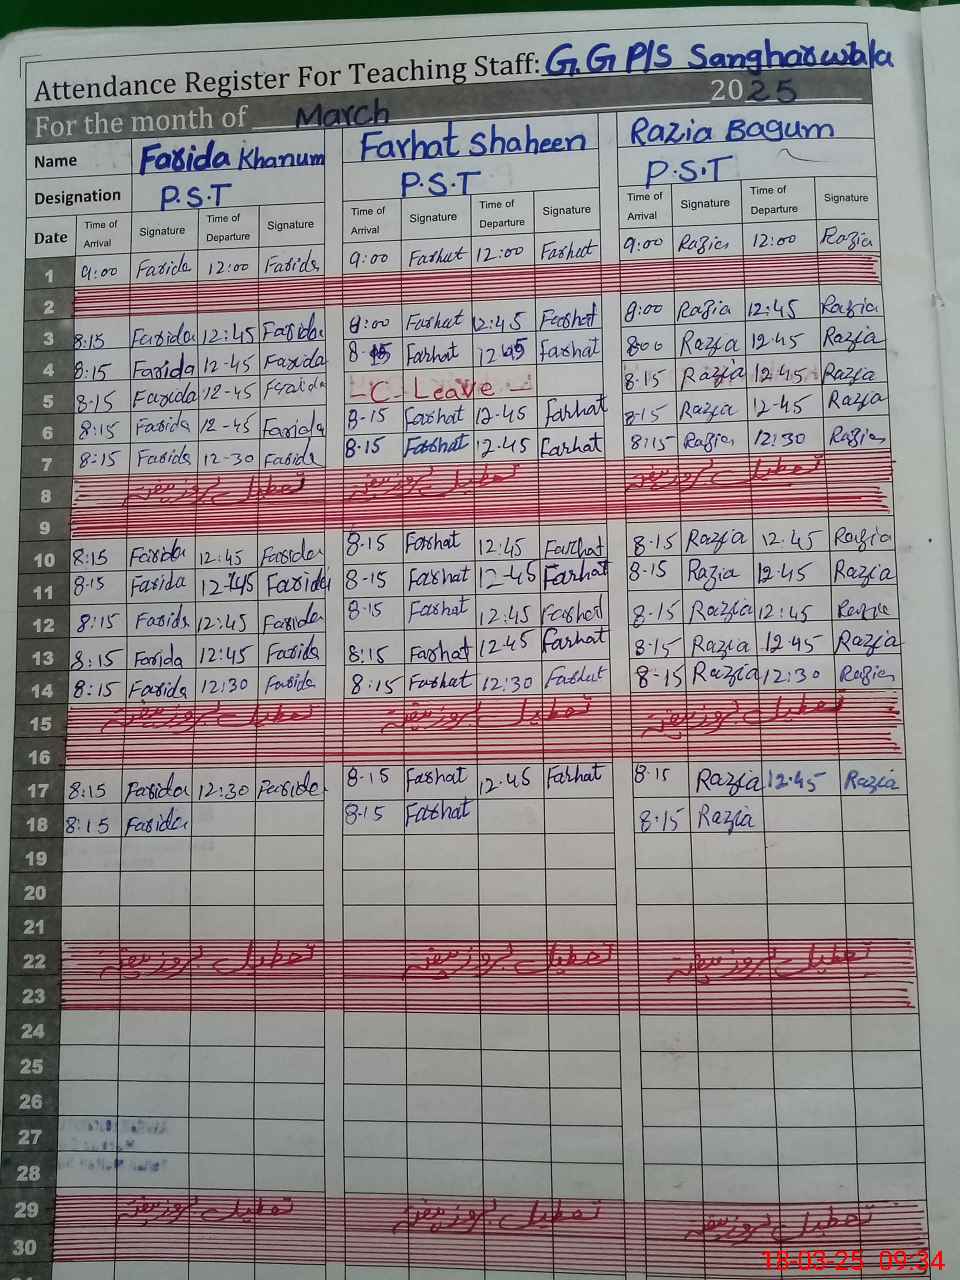 Attendance Register For Teaching Staff: G.G P/S Sangharwala
For the month of March 2025
Name Farida Khanum Farhat Shaheen Razia Bagum
Designation P.S.T P.S.T P.S.T
Date Time of Arrival Signature Time of Departure Signature Time of Arrival Signature Time of Departure Signature Time of Arrival Signature Time of Departure Signature
1 9:00 Farida 12:00 Farida 9:00 Farhat 12:00 Farhat 9:00 Razia 12:00 Razia
2
3 8:15 Farida 12:45 Farida 9:00 Farhat 12:45 Farhat 9:00 Razia 12:45 Razia
4 8:15 Farida 12-45 Farida 8-15 Farhat 12 45 Farhat 800 Razia 12.45 Razia
5 8-15 Farida 12-45 Farida -C-Leave- 8-15 Razia 12.45 Razia
6 8:15 Farida 12-45 Farida 8-15 Farhat 12-45 Farhat 8-15 Razia 12-45 Razia
7 8-15 Farida 12-30 Farida 8-15 Farhat 12.45 Farhat 8:15 Razia 12:30 Razia
8 تعطیل بروز ہفتہ تعطیل بروز ہفتہ تعطیل بروز ہفتہ
9
10 8:15 Farida 12:45 Farida 8-15 Farhat 12:45 Farhat 8-15 Razia 12.45 Razia
11 8-15 Farida 12-45 Farida 8-15 Farhat 12-45 Farhat 8-15 Razia 12.45 Razia
12 8:15 Farida 12:45 Farida 8-15 Farhat 12:45 Farhat 8-15 Razia 12:45 Razia
13 8:15 Farida 12:45 Farida 8:15 Farhat 12.45 Farhat 8-15 Razia 12.45 Razia
14 8:15 Farida 12:30 Farida 8:15 Farhat 12:30 Farhat 8-15 Razia 12:30 Razia
15 تعطیل بروز ہفتہ تعطیل بروز ہفتہ تعطیل بروز ہفتہ
16
17 8:15 Farida 12:30 Farida 8-15 Farhat 12.45 Farhat 8-15 Razia 12.45 Razia
18 8:15 Farida 8-15 Farhat 8-15 Razia
19
20
21
22 تعطیل بروز ہفتہ تعطیل بروز ہفتہ تعطیل بروز ہفتہ
23
24
25
26
27
28
29 تعطیل بروز ہفتہ تعطیل بروز ہفتہ تعطیل بروز ہفتہ
30
18-03-25 09:34